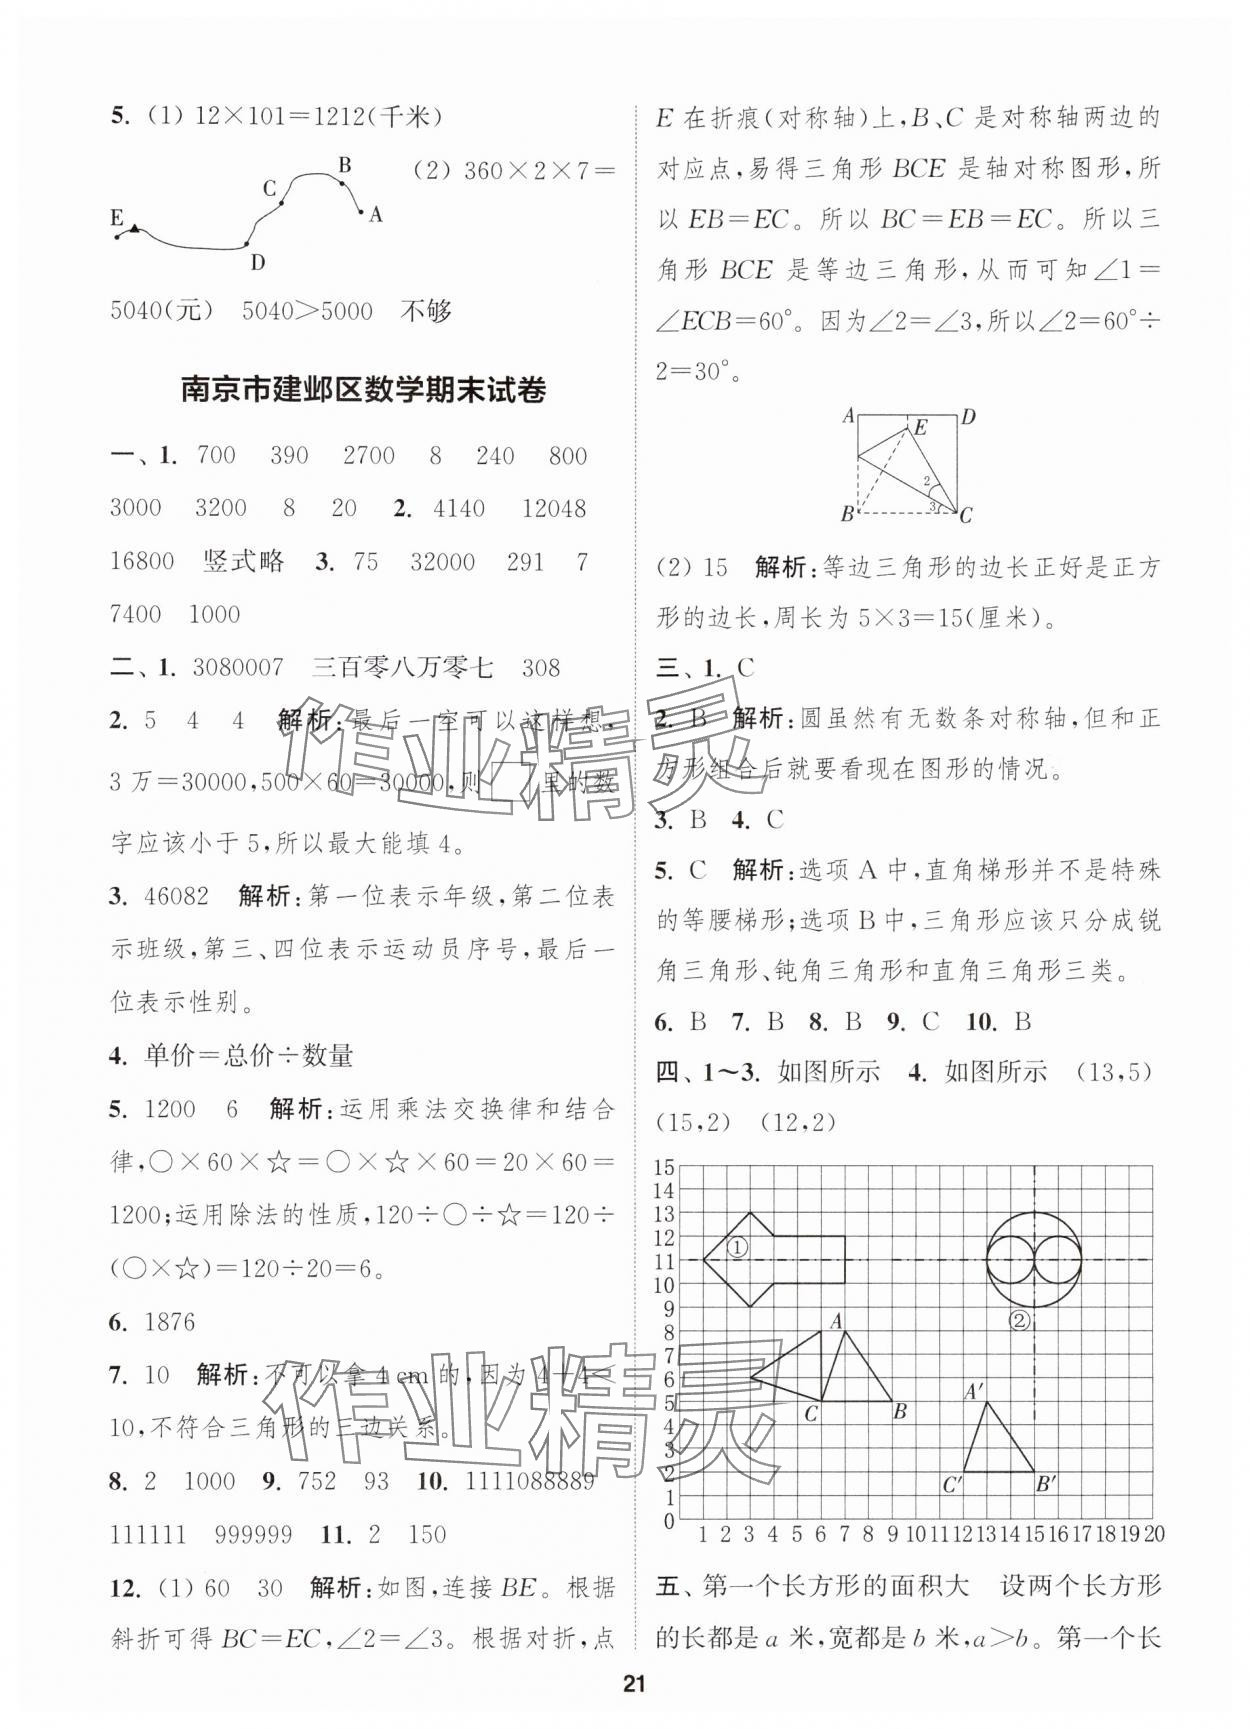 5. (1) 12×101=1212(千米)
(2) 360×2×7=
B
C
A
E
D
5040(元) 5040>5000 不够
南京市建邺区数学期末试卷
一、1. 700 390 2700 8 240 800
3000 3200 8 20 2. 4140 12048
16800 竖式略 3. 75 32000 291 7
7400 1000
二、1. 3080007 三百零八万零七 308
2. 5 4 4 解析:最后一空可以这样想,
3万=30000,500×60=30000,则□里的数
字应该小于5,所以最大能填4。
3. 46082 解析:第一位表示年级,第二位表
示班级,第三、四位表示运动员序号,最后一
位表示性别。
4. 单价=总价÷数量
5. 1200 6 解析:运用乘法交换律和结合
律,○×60×☆=○×☆×60=20×60=
1200;运用除法的性质,120÷○÷☆=120÷
(○×☆)=120÷20=6。
6. 1876
7. 10 解析:不可以拿4 cm的,因为4+4<
10,不符合三角形的三边关系。
8. 2 1000 9. 752 93 10. 1111088889
111111 999999 11. 2 150
12. (1) 60 30 解析:如图,连接BE。根据
斜折可得BC=EC,∠2=∠3。根据对折,点
E在折痕(对称轴)上,B、C是对称轴两边的
对应点,易得三角形BCE是轴对称图形,所
以EB=EC。所以BC=EB=EC。所以三
角形BCE是等边三角形,从而可知∠1=
∠ECB=60°。因为∠2=∠3,所以∠2=60°÷
2=30°。
A D
E
2
3
B C
(2) 15 解析:等边三角形的边长正好是正方
形的边长,周长为5×3=15(厘米)。
三、1. C
2. B 解析:圆虽然有无数条对称轴,但和正
方形组合后就要看现在图形的情况。
3. B 4. C
5. C 解析:选项A中,直角梯形并不是特殊
的等腰梯形;选项B中,三角形应该只分成锐
角三角形、钝角三角形和直角三角形三类。
6. B 7. B 8. B 9. C 10. B
四、1~3. 如图所示 4. 如图所示 (13,5)
(15,2) (12,2)
15
14
13
12
11
10
9
8
7
6
5
4
3
2
1
0
① ②
A
C B
A′
C′ B′
1 2 3 4 5 6 7 8 9 10 11 12 13 14 15 16 17 18 19 20
五、第一个长方形的面积大 设两个长方形
的长都是a米,宽都是b米,a>b。第一个长
21
作业精灵
作业精灵